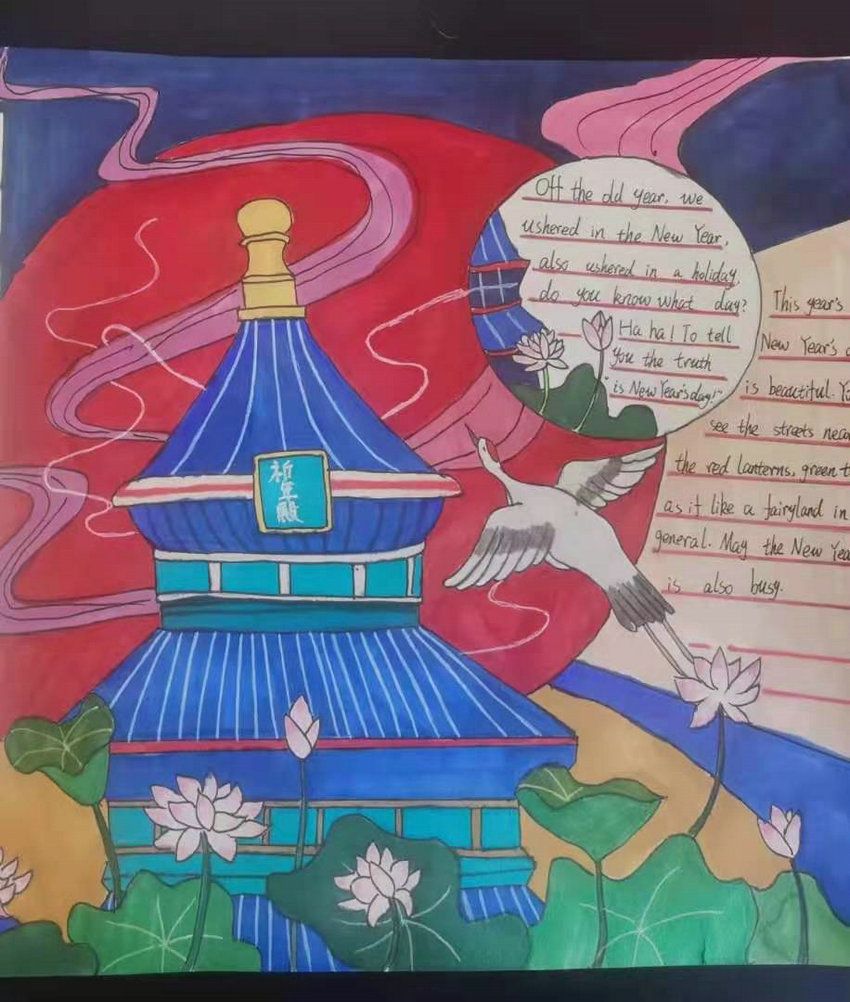 Off the old year, we
ushered in the New Year,
also ushered in a holiday,
do you know what day?
Ha ha! To tell
you the truth
"is New Year's day!"
This year's
New Year's
is beautiful.
see the streets
the red lanterns, green
as it like a fairyland in
general. May the New
is also busy.
祈年殿